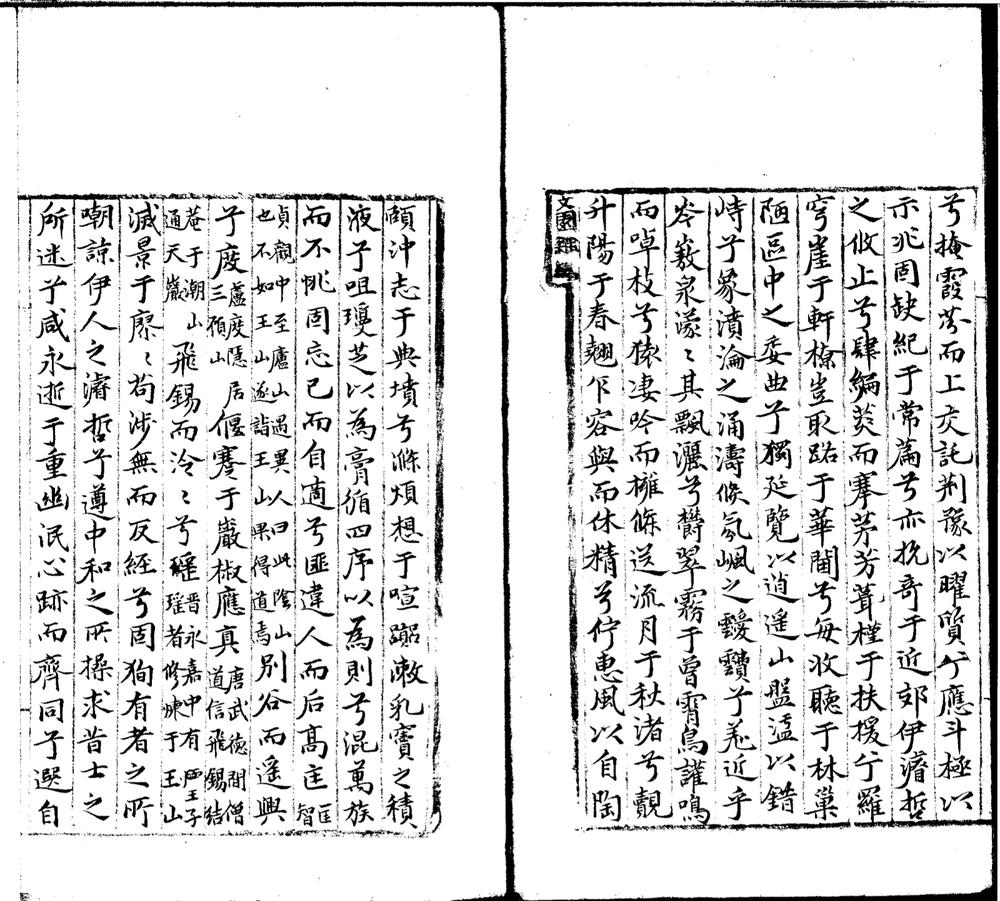 兮掩霞芬而上交託荆豫以曜質兮應斗極以
示兆固缺紀于常篇兮亦挩奇于近郊伊濬哲
之攸止兮肆編茭而搴茅芳葺槿于扶椳兮羅
穹崖于軒檐豈取踞于華閫兮每收聽于林巢
陋區中之委曲兮獨延覽以逍遥山盤盓以錯
峙兮象濆淪之涌濤倐氛颯之靉靆兮羌近乎
岑嶔泉濛〻其飄灑兮欝翠霧于曾霄鳥讙鳴
而啅枝兮猿凄吟而擁條送流月于秋渚兮覿
升陽于春翹乍容與而休精兮佇惠風以自陶
頫沖志于典墳兮滌煩想于喧漱乳竇之積
液兮咀瓊芝以為膏循四序以為則兮混萬族
而不恌固忘己而自適兮匪違人而后髙匡匡智
貞觀中至廬山遇異人曰此陰山也不如王山遂詣王山果得道焉别谷而遥興
兮度盧度隱居三顧山偃蹇于巖椒應真唐武德間僧道信飛錫結
菴于潮山通天巖飛錫而泠〻兮瑶晉永嘉中有王子瑶者修煉于王山
滅景于廖〻苟涉無而反經兮固狥有者之所
嘲諒伊人之濬哲兮遵中和之所操求昔士之
所迷兮咸永逝于重幽泯心跡而齊同兮自